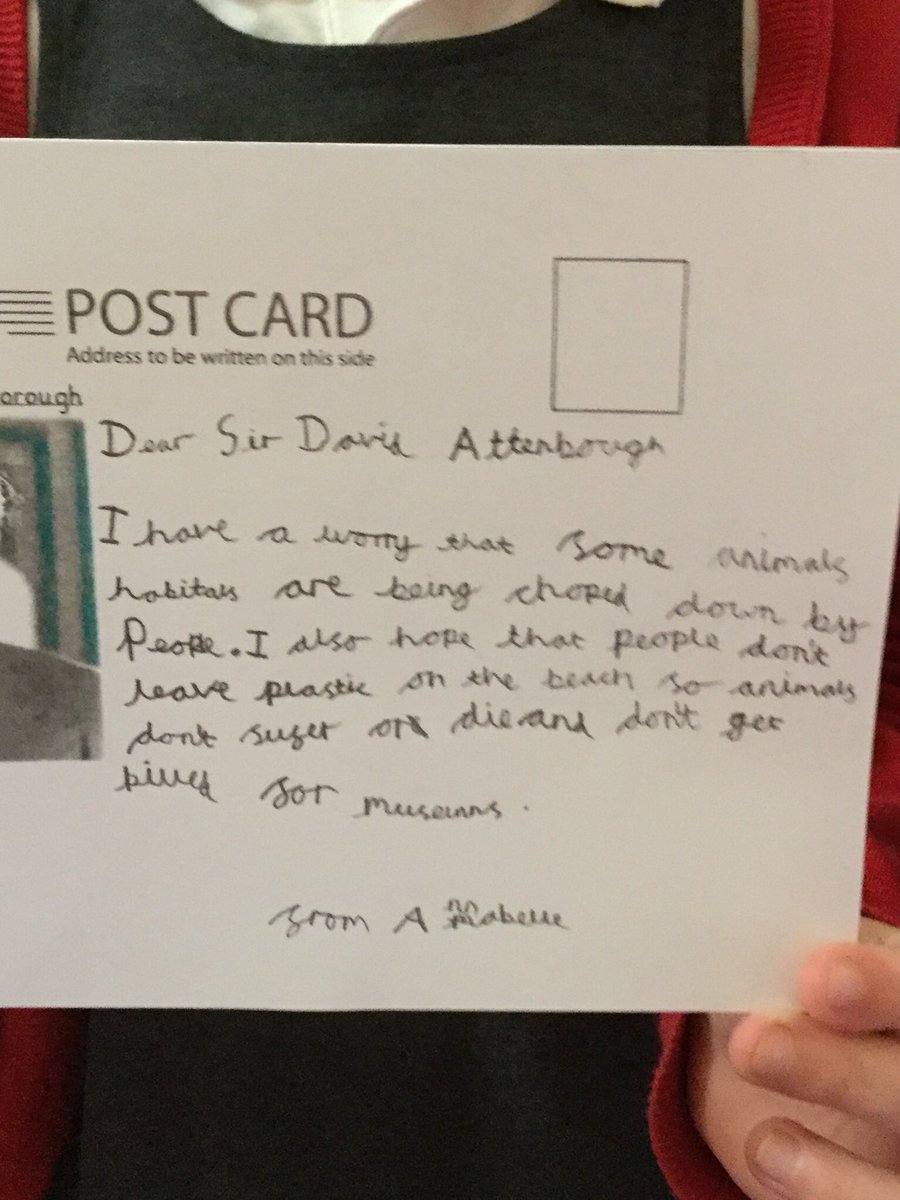 POST CARD
Address to be written on this side
orough
Dear Sir David Attenbough
I have a worry that some animals
habitats are being choped down by
People. I also hope that people don't
leave plastic on the beach so animals
don't sufer or die and don't get
killed for museums.
from Amabelle